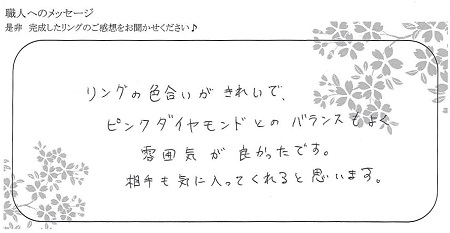 職人へのメッセージ
是非 完成したリングのご感想をお聞かせください♪
リングの色合いがきれいで、
ピンクダイヤモンドとのバランスもよく
雰囲気が良かったです。
相手も気に入ってくれると思います。